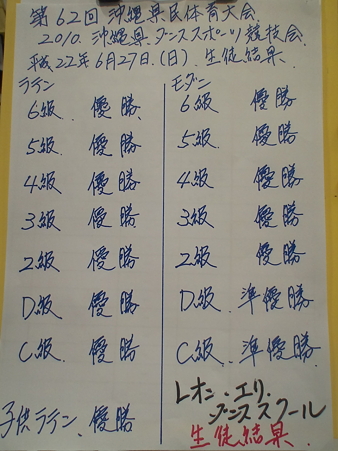 第62回 沖縄県民体育大会
2010. 沖縄県ダンススポーツ競技会
平成22年6月27日.(日) 生徒結果
ラテン
6級 優勝
5級 優勝
4級 優勝
3級 優勝
2級 優勝
D級 優勝
C級. 優勝
子供ラテン. 優勝
モダン
6級 優勝
5級 優勝
4級 優勝
3級 優勝
2級 優勝
D級. 準優勝
C級. 準優勝
レオン.エリ.
ダンススクール
生徒結果.